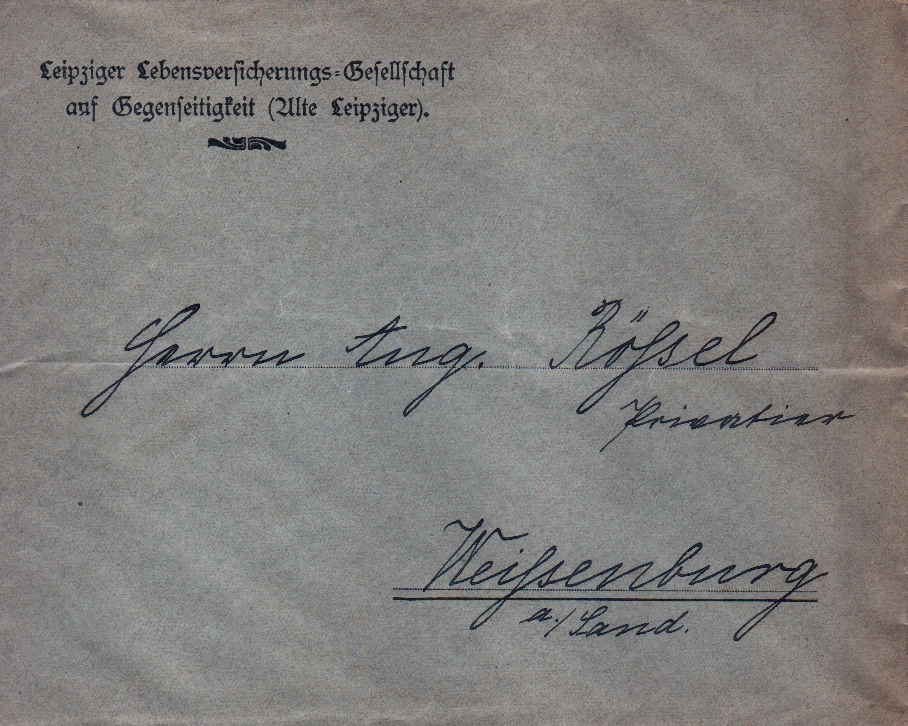 Leipziger Lebensversicherungs=Gesellschaft
auf Gegenseitigkeit (Alte Leipziger).
Herrn Aug. Rössel
Privatier
Weissenburg
a./Sand.